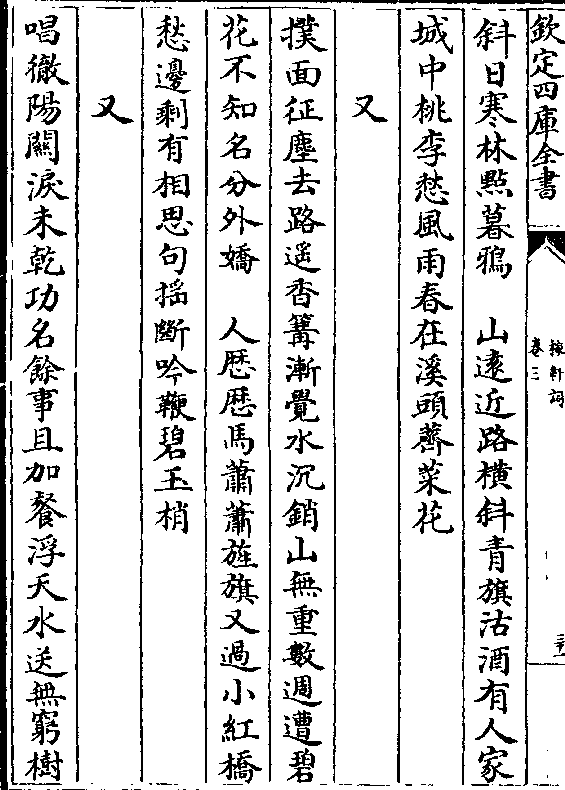 欽定四庫全書
稼軒詞
卷三
斜日寒林㸃暮鴉　山逺近路横斜青旗沽酒有人家
城中桃李愁風雨春在溪頭薺菜花
又
撲面征塵去路遥香篝漸覺水沉銷山無重數週遭碧
花不知名分外嬌　人歴歴馬蕭蕭旌旗又過小紅橋
愁邊剩有相思句揺斷吟鞭碧玉梢
又
唱徹陽關淚未乾功名餘事且加餐浮天水送無窮樹